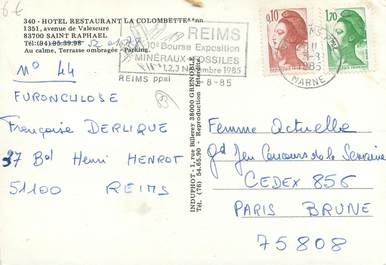 6€
340 - HOTEL RESTAURANT LA COLOMBETTE
1351, avenue de Valescure
83700 SAINT RAPHAEL
Tél: (94) 95.39.98
Au calme, Terrasse ombragée - Parking.
REIMS
10e Bourse Exposition
MINÉRAUX-FOSSILES
1.2.3 Novembre 1985
REIMS ppal
-8-85
0,10
1,70
1985
MARNE
N° 44
FURONCULOSE
Françoise DERLIQUE
37 Bd Henri HENROT
51100 REIMS
INDUPHOT - 1, rue Billerey 38000 GRENOBLE
Tél. (76) 54.65.90 - Reproduction interdite.
Femme Actuelle
Gd Jeu Concours de la Semaine
CEDEX 856
PARIS BRUNE
75808